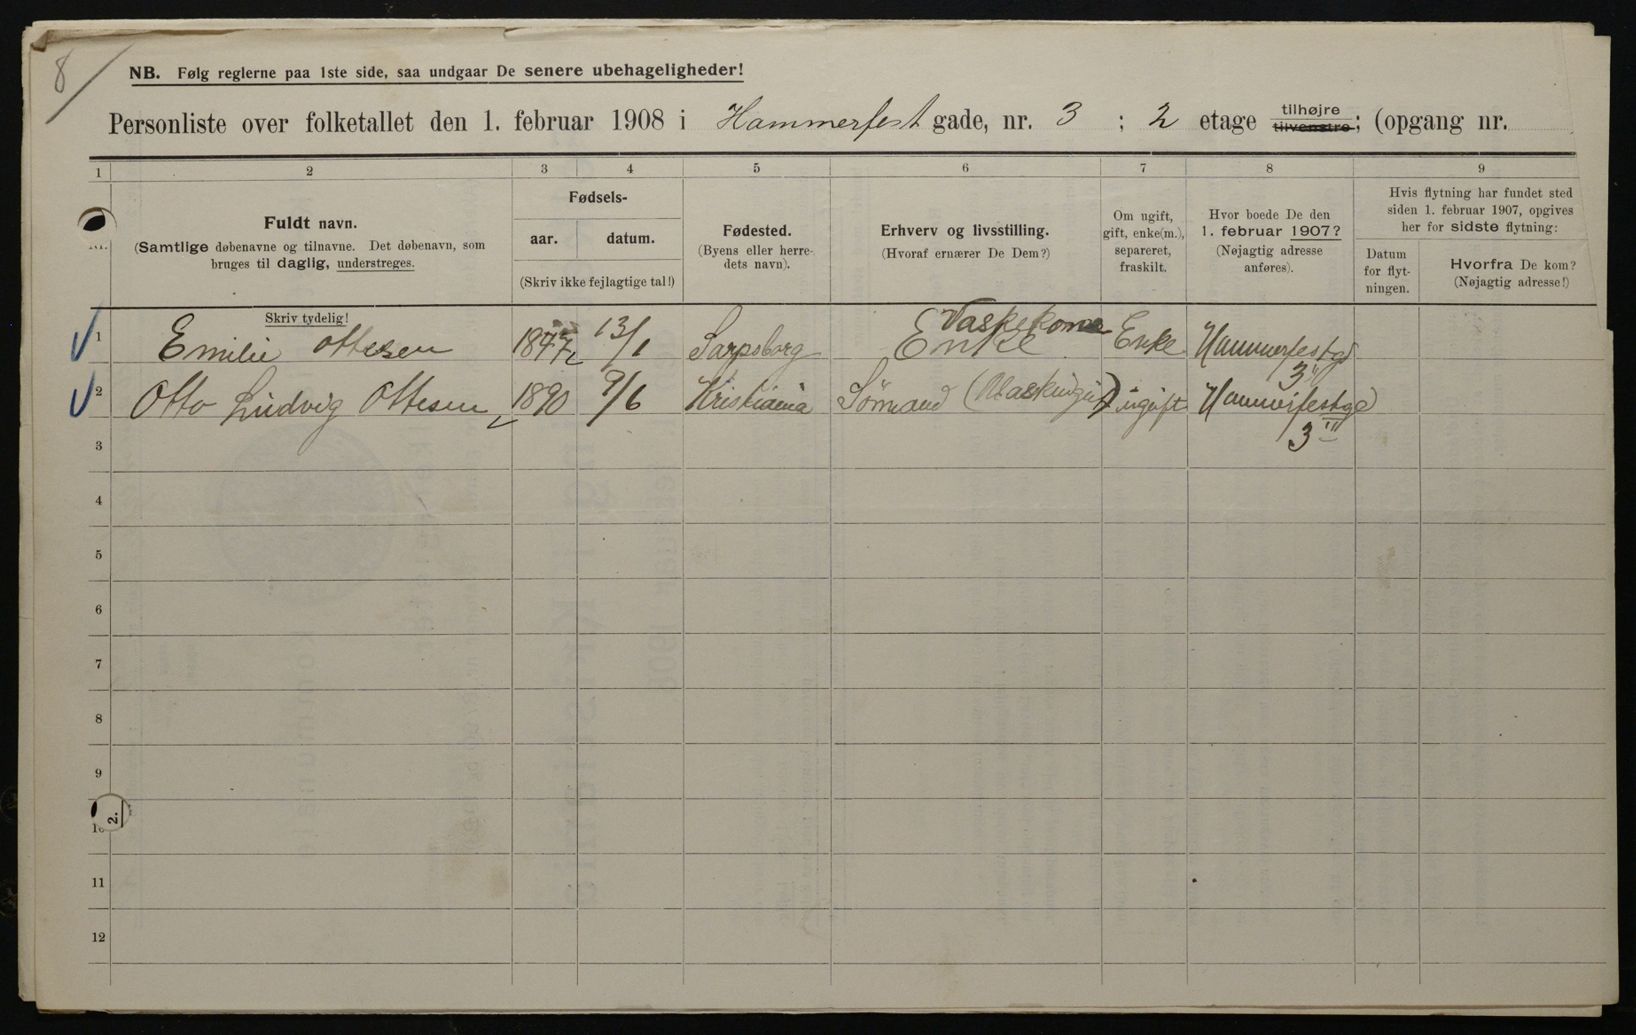 8
NB. Følg reglerne paa 1ste side, saa undgaar De senere ubehageligheder!
Personliste over folketallet den 1. februar 1908 i Hammerfest gade, nr. 3 ; 2 etage tilhøjre tilvenstre; (opgang nr.
1 2 3 4 5 6 7 8 9
Fuldt navn.
(Samtlige døbenavne og tilnavne. Det døbenavn, som
bruges til daglig, understreges.
Skriv tydelig!
Fødsels-
aar. datum.
(Skriv ikke fejlagtige tal!)
Fødested.
(Byens eller herre-
dets navn).
Erhverv og livsstilling.
(Hvoraf ernærer De Dem?)
Om ugift,
gift, enke(m.),
separeret,
fraskilt.
Hvor boede De den
1. februar 1907?
(Nøjagtig adresse
anføres).
Hvis flytning har fundet sted
siden 1. februar 1907, opgives
her for sidste flytning:
Datum
for flyt-
ningen.
Hvorfra De kom?
(Nøjagtig adresse!)
Vaskekone
1 Emilie Ottesen 13/1 Sarpsborg Enke Enke Hammerfestgd
3
2 Otto Ludvig Ottesen 1890 9/6 Kristiania Sømand ugift Hammerfestgd
3 III
3
4
5
6
7
8
9
2.
11
12